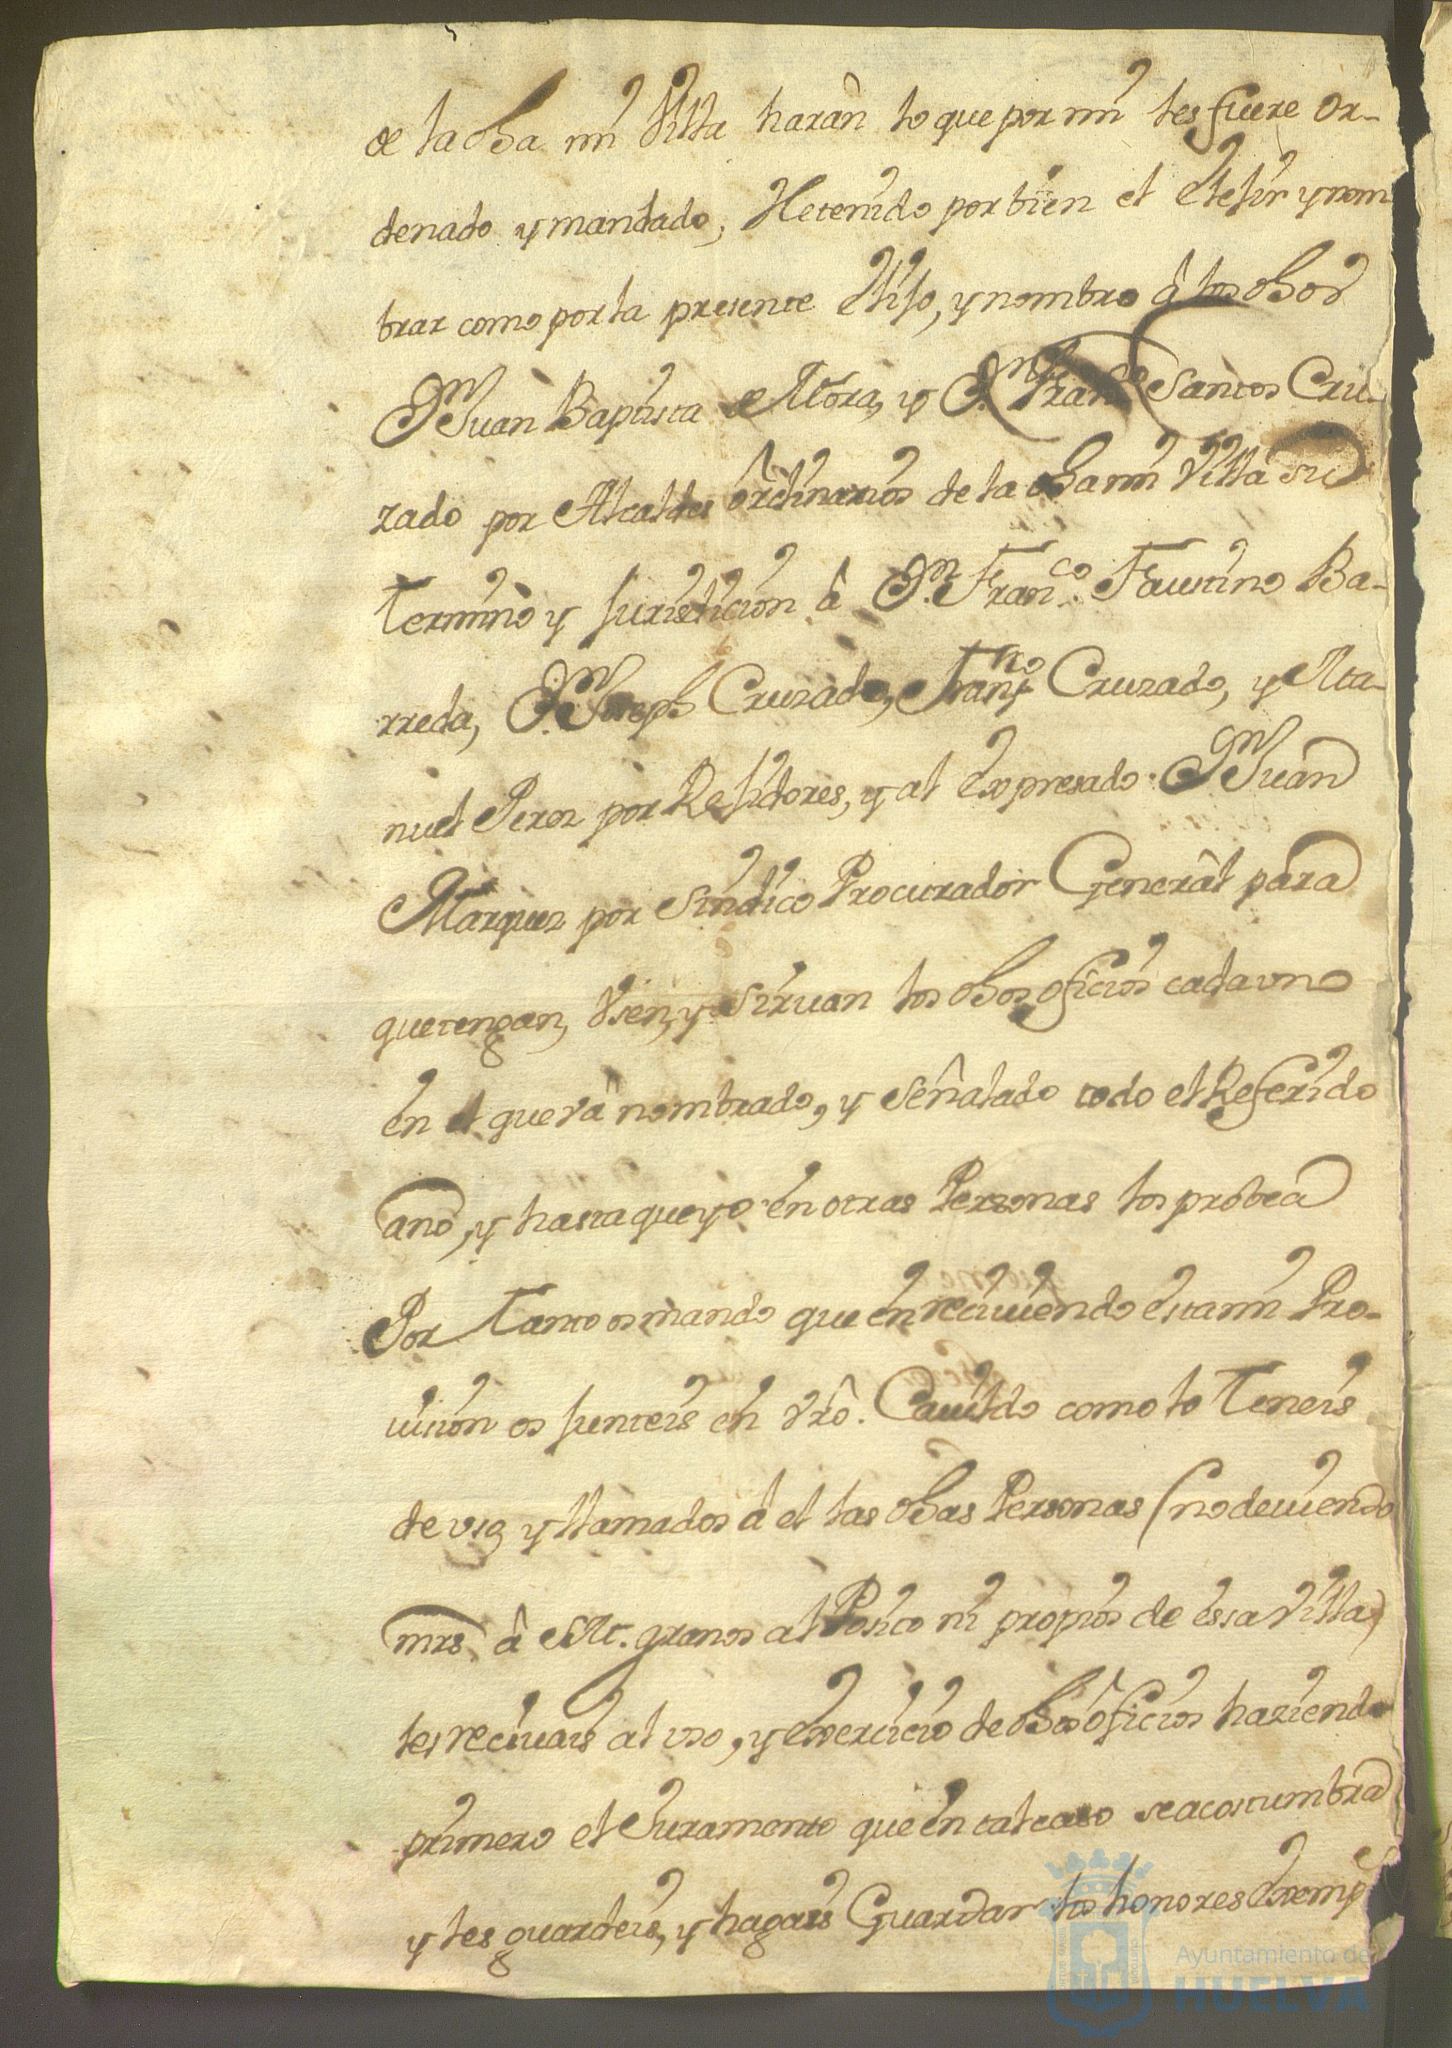 de la dha mi Villa harân lo que por mi les fuere or-
denado y mandado, He tenido por bien el elejir y nom
brar como por la presente elijo, y nombro â los dhos
Dn Juan Baptista de Mora, y Dn Franco Santos Cru-
zado por Alcaldes ôrdinarios de la dha mi Villa su
Termino y jurisdicion â Dn Franco. Faustino Ba-
rreda, Dn Joseph Cruzado, Franco Cruzado, y Ma-
nuel Perez por Rejidores, y al expresado Dn Juan
Marquez por Sindico Procurador Generâl para
que tengan, Vsen, y Siruan los dhos oficios cada vno
en el que vâ nombrado, y señalado todo el Referido
año, y hasta que yo en otras Personas los probea
Por Tanto os mando que en reciuiendo esta mi Pro-
uision os junteis en vrô. Cauildo como lo Teneis
de vso, y llamados â el las dhas Personas (no deuiendo
mrs. â S.M. granos al Posito ni propios de essa Villa)
les reciuais al vso, y exercicio de dhos ôficios haziendo
primero el Juramento que en tal caso se acostumbra
y les guardeis, y hagais Guardar los honores Exemp
Ayuntamiento de
HUELVA